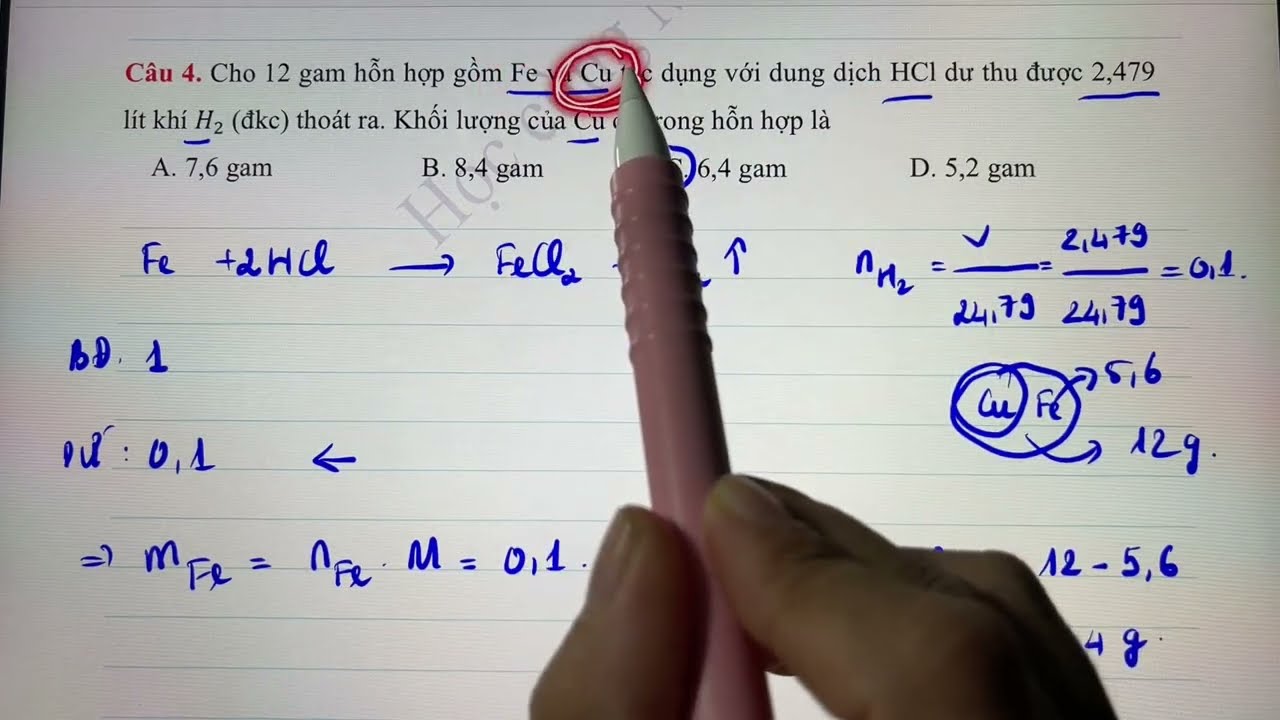 Câu 4. Cho 12 gam hỗn hợp gồm Fe Cu dụng với dung dịch HCl dư thu được 2,479
lít khí H₂ (đkc) thoát ra. Khối lượng của Cu trong hỗn hợp là
A. 7,6 gam B. 8,4 gam 6,4 gam D. 5,2 gam
Học
Fe +2HCl → FeCl₂ ↑
n_H₂ = V/24,79 = 2,479/24,79 = 0,1.
BĐ. 1
Cu Fe 5,6
12g.
PƯ : 0,1 ←
=> m_Fe = n_Fe . M = 0,1 .
12 - 5,6
4 g